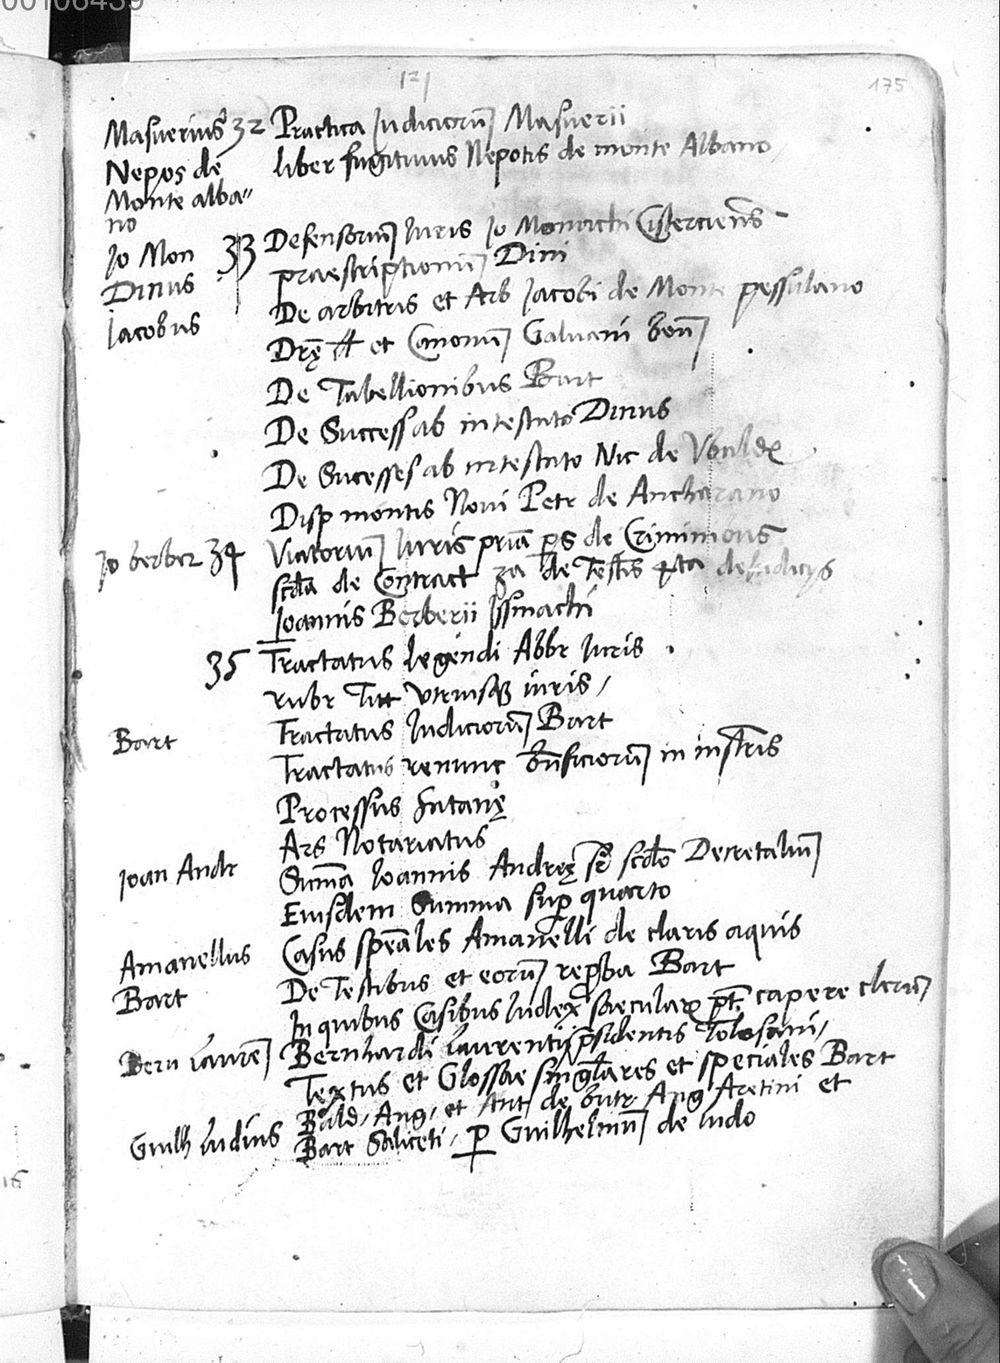 00106439
121
175
Masuerius 32 Practica Iudiciorum Masuerii
Nepos de liber fugitiuus Nepotis de monte Albano
Monte alba"
no
Io Mon 33 Defensorium Iuris Io Monachi Cisterciens
Dinus praescriptionum Dini
Iacobus De arbitris et Arb Iacobi de Monte pessulano
et Canonum Galuani bon
De Tabellionibus Bart
De Success ab intestato Dinus
De Sucesses ab intestato Nic de
Disp montis Noui Petr de Ancharano
Io berber 34 Viatorium Iuris prima ps de Criminibus
scda de Contract 3a de Testis 4ta de Iudicijs
Ioannis Berberii Issmachi
35 Tractatus legendi Abbr Iuris
rubr Titt Vtriusque iuris
Bart Tractatus Iudiciorum Bart
Tractatus renunc bnficiorum in instris
Processus Satanę
Ars Notariatus
Ioan Andr Summa Ioannis Andreę sr scdo Decretalium
Eiusdem Summa sup quarto
Amanellus Casus speales Amanelli de claris aquis
Bart De Testibus et eorum reproba Bart
In quibus Casibus Iudex saecular pt capere clerum
Bern Lauren Bernhardi Laurentii psidentis Tolosani
Textus et Glossae singlares et speciales Bart
Bald, Ang, et Ant de butr Ang Aretini et
Guilh Ludius Bart Saliceti, p Guilhelmum de ludo